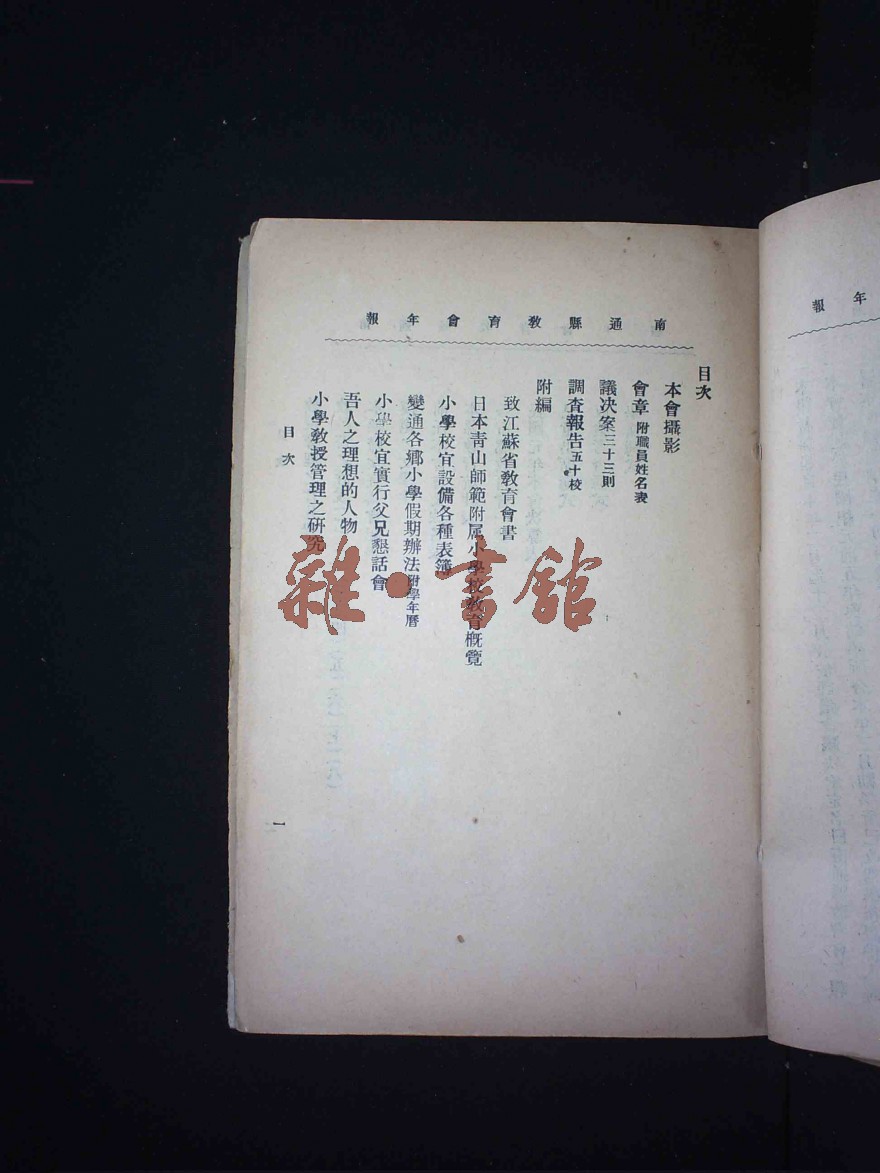 南通縣教育會年報
目次
本會攝影
會章 附職員姓名表
議決案 三十三則
調查報告 五十校
附編
致江蘇省教育會書
日本青山師範附属小學校教育概覽
小學校宜設備各種表簿
變通各鄉小學假期辦法 附學年曆
小學校宜實行父兄懇話會
吾人之理想的人物
小學教授管理之研究
目次
一
年報
雜·書館